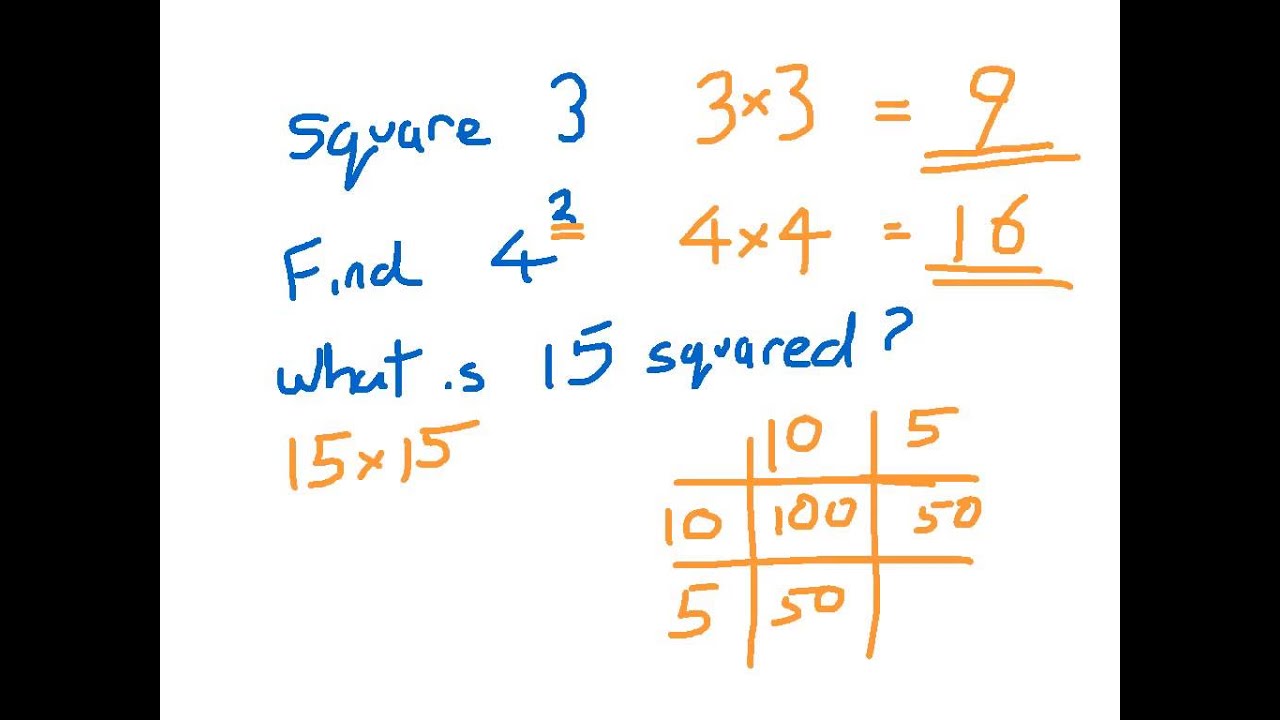 square 3 3×3 = 9
Find 4² 4×4 = 16
what is 15 squared?
15×15
10 5
10 100 50
5 50